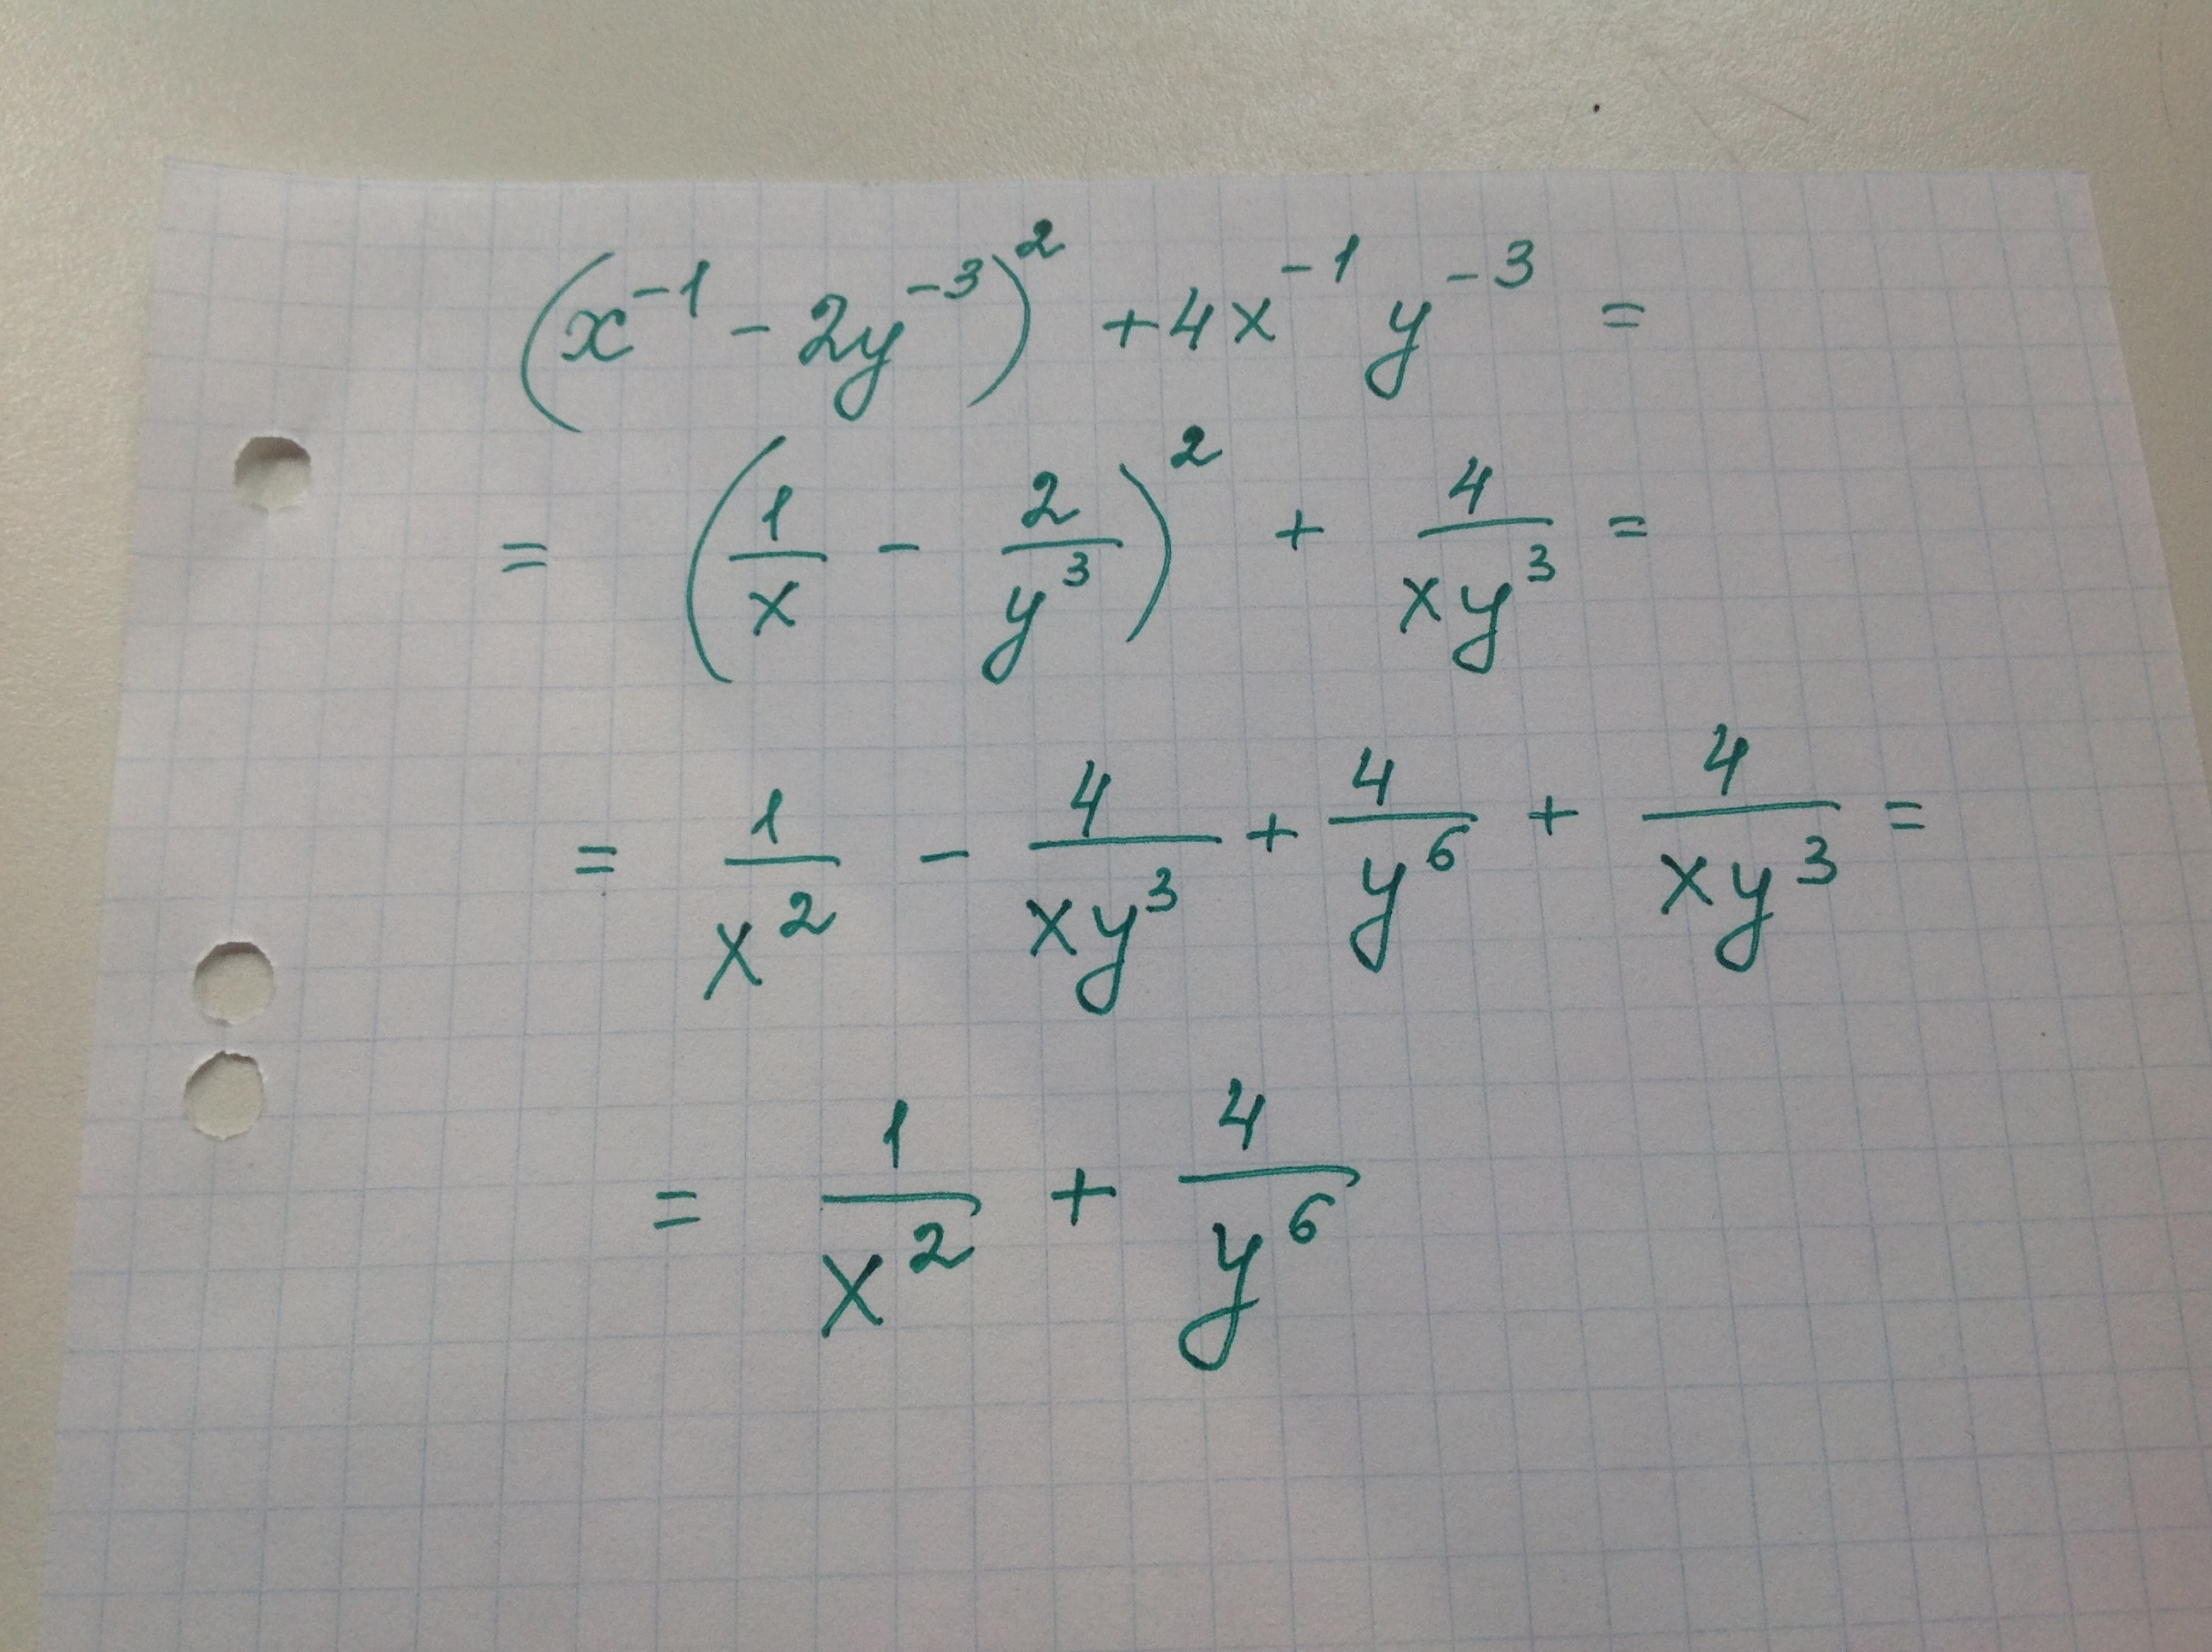 (x⁻¹ - 2y⁻³)² + 4x⁻¹y⁻³ =
= (1/x - 2/y³)² + 4/(xy³) =
= 1/x² - 4/(xy³) + 4/y⁶ + 4/(xy³) =
= 1/x² + 4/y⁶